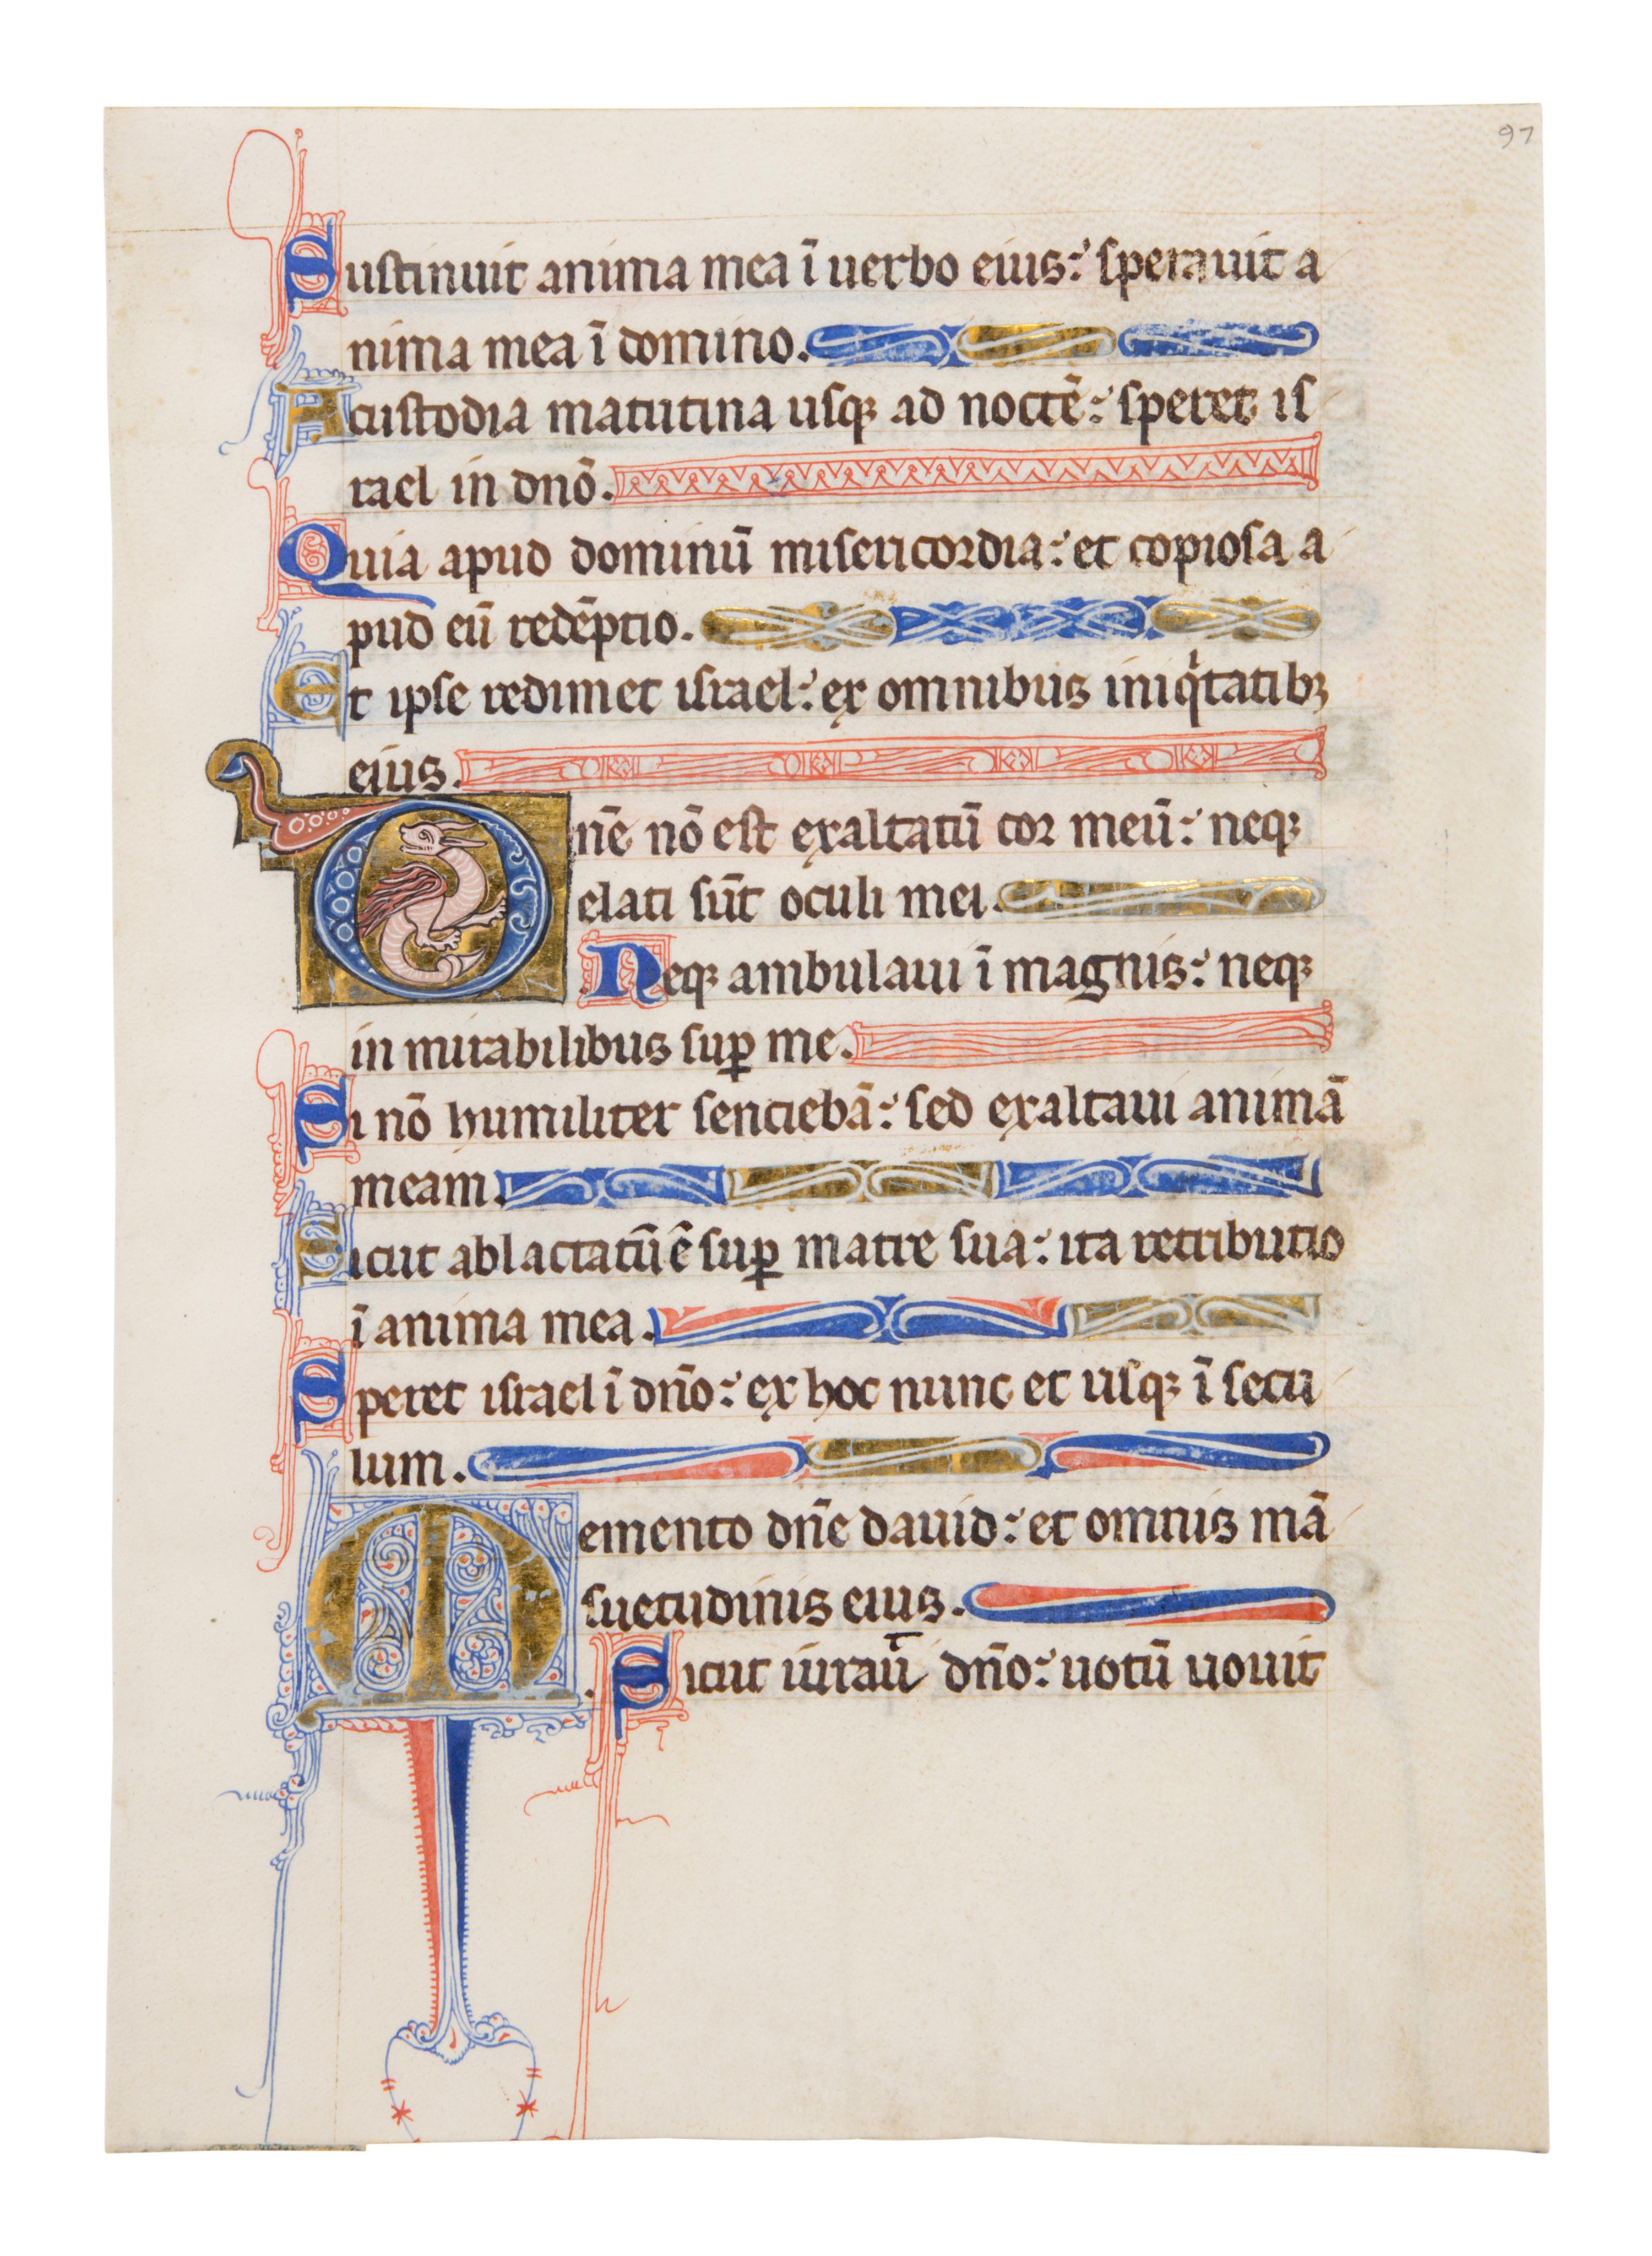 97
Sustinuit anima mea ī uerbo eius: sperauit a
nima mea ī domino.
A custodia matutina usqꝫ ad noctē: speret is
rael in dnō.
Quia apud dominū misericordia: et copiosa a
pud eū redēptio.
Et ipse redimet israel: ex omnibus iniqͥtatibꝫ
eius.
Dnē nō est exaltatū cor meū: neqꝫ
elati sūt oculi mei.
Neqꝫ ambulaui ī magnis: neqꝫ
in mirabilibus suꝑ me.
Si nō humiliter senciebā: sed exaltaui animā
meam.
Sicut ablactatū ē suꝑ matre sua: ita retributio
ī anima mea.
Speret israel ī dño: ex hoc nunc et usqꝫ ī secu
lum.
Memento dñe dauid: et omnis mā
suetudinis eius.
Sicut iurau̅ dño: uotū uouit